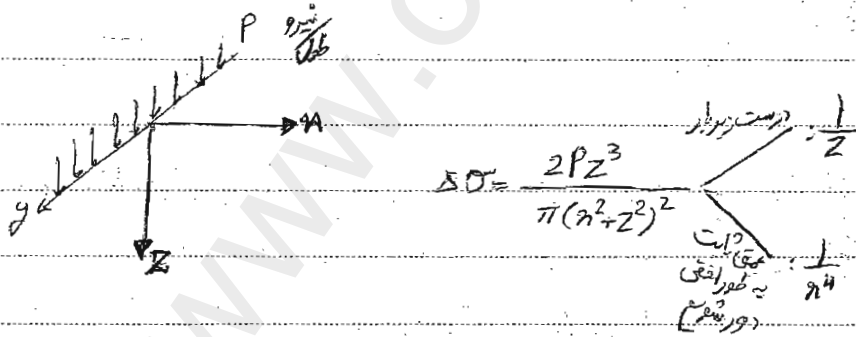 P نیرو/طول
x
y
Z
Δσ = 2PZ³ / π(x²+Z²)²
درست زیر بار : 1/Z
عمق ثابت به طور افقی دور شویم : 1/x⁴